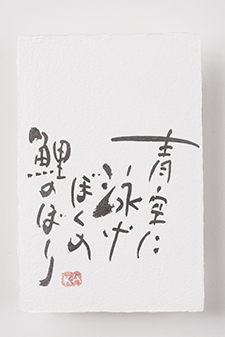 青空に
泳げ
ぼくの
鯉のぼり
KA